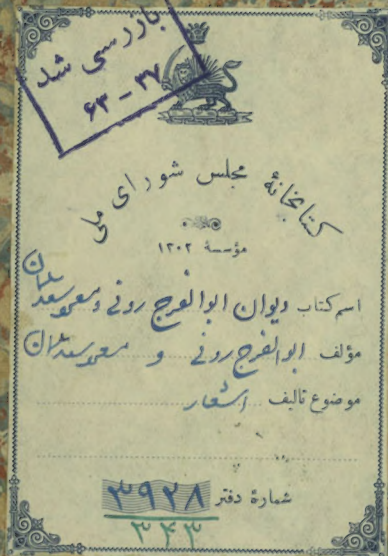 بازرسی شد
۶۳ - ۳۷
کتابخانهٔ مجلس شورای ملی
مؤسسهٔ ۱۳۰۲
اسم کتاب دیوان ابوالفرج رونی و مسعود سعد سلمان
مؤلف ابوالفرج رونی و مسعود سعد سلمان
موضوع تالیف اشعار
شمارهٔ دفتر ۳۹۲۸
۳۴۳